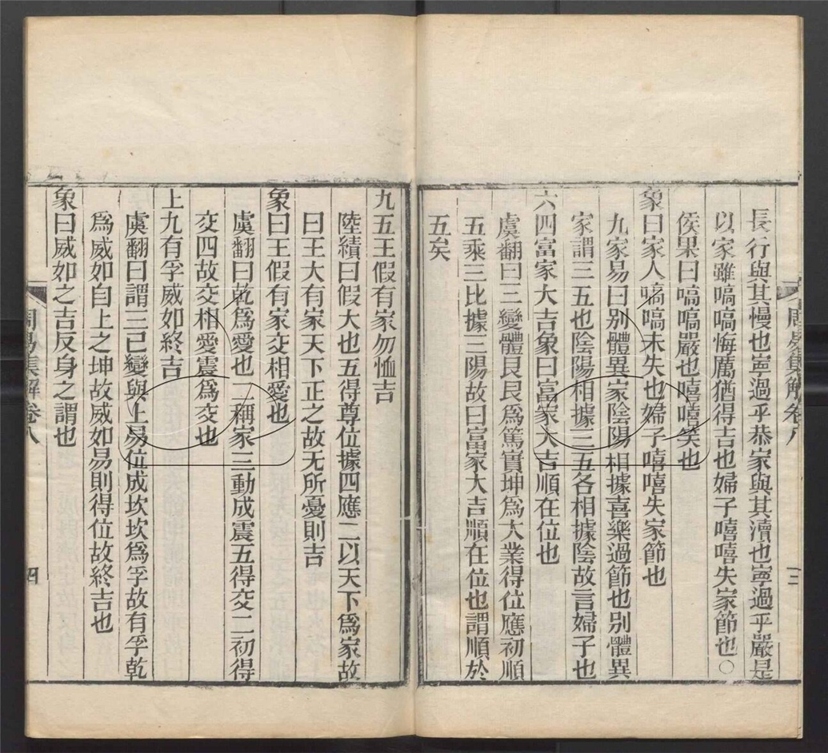 長行與其慢也寧過乎恭家與其瀆也寧過乎嚴是
以家雖嗃嗃悔厲猶得吉也婦子嘻嘻失家節也○
侯果曰嗃嗃嚴也嘻嘻笑也
象曰家人嗃嗃未失也婦子嘻嘻失家節也
九家易曰別體異家陰陽相據喜樂過節也別體異
家謂三五也陰陽相據三五各相據陰故言婦子也
六四富家大吉象曰富家大吉順在位也
虞翻曰三變體艮艮爲篤實坤爲大業得位應初順
五乘三比據三陽故曰富家大吉順在位也謂順於
五矣
周易集解卷八
三
九五王假有家勿恤吉
陸績曰假大也五得尊位據四應二以天下爲家故
曰王大有家天下正之故无所憂則吉
象曰王假有家交相愛也
虞翻曰乾爲愛也二稱家三動成震五得交二初得
交四故交相愛震爲交也
上九有孚威如終吉
虞翻曰謂三已變與上易位成坎坎爲孚故有孚乾
爲威如自上之坤故威如易則得位故終吉也
象曰威如之吉反身之謂也
周易集解卷八
四